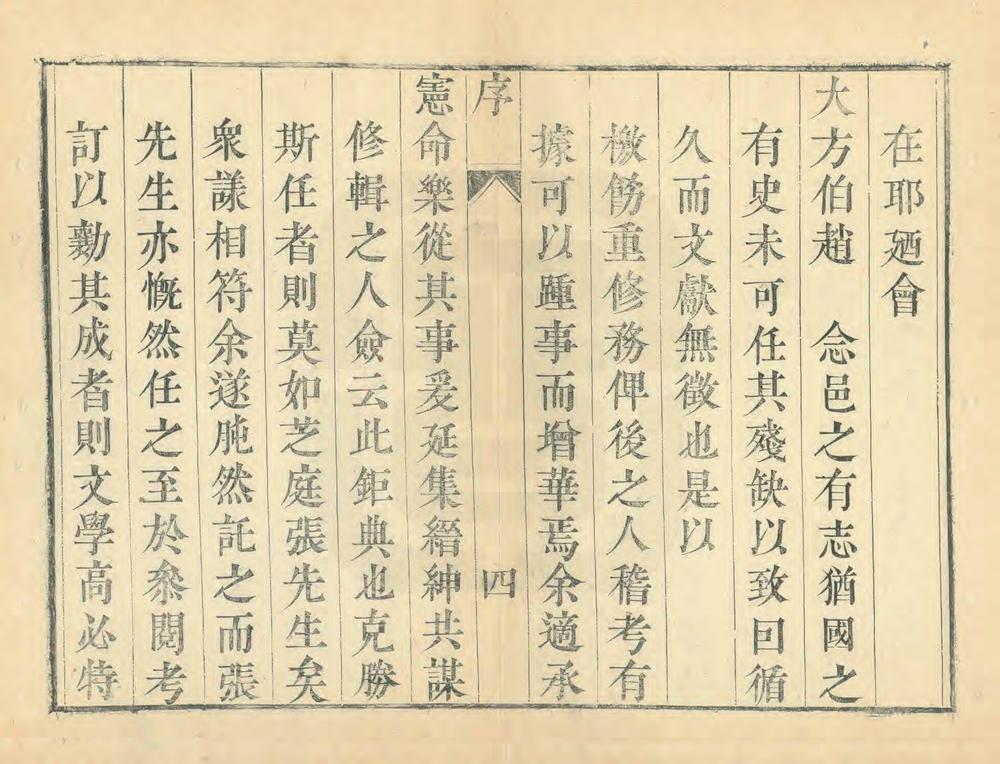 在耶廼會
大方伯趙　念邑之有志猶國之
有史未可任其殘缺以致回循
久而文獻無徵也是以
檄飭重修務俾後之人稽考有
據可以踵事而增華焉余適承
序　四
憲命樂從其事爰延集縉紳共謀
修輯之人僉云此鉅典也克勝
斯任者則莫如芝庭張先生矣
衆謀相符余遂肫然託之而張
先生亦慨然任之至於叅閱考
訂以勷其成者則文學高必特